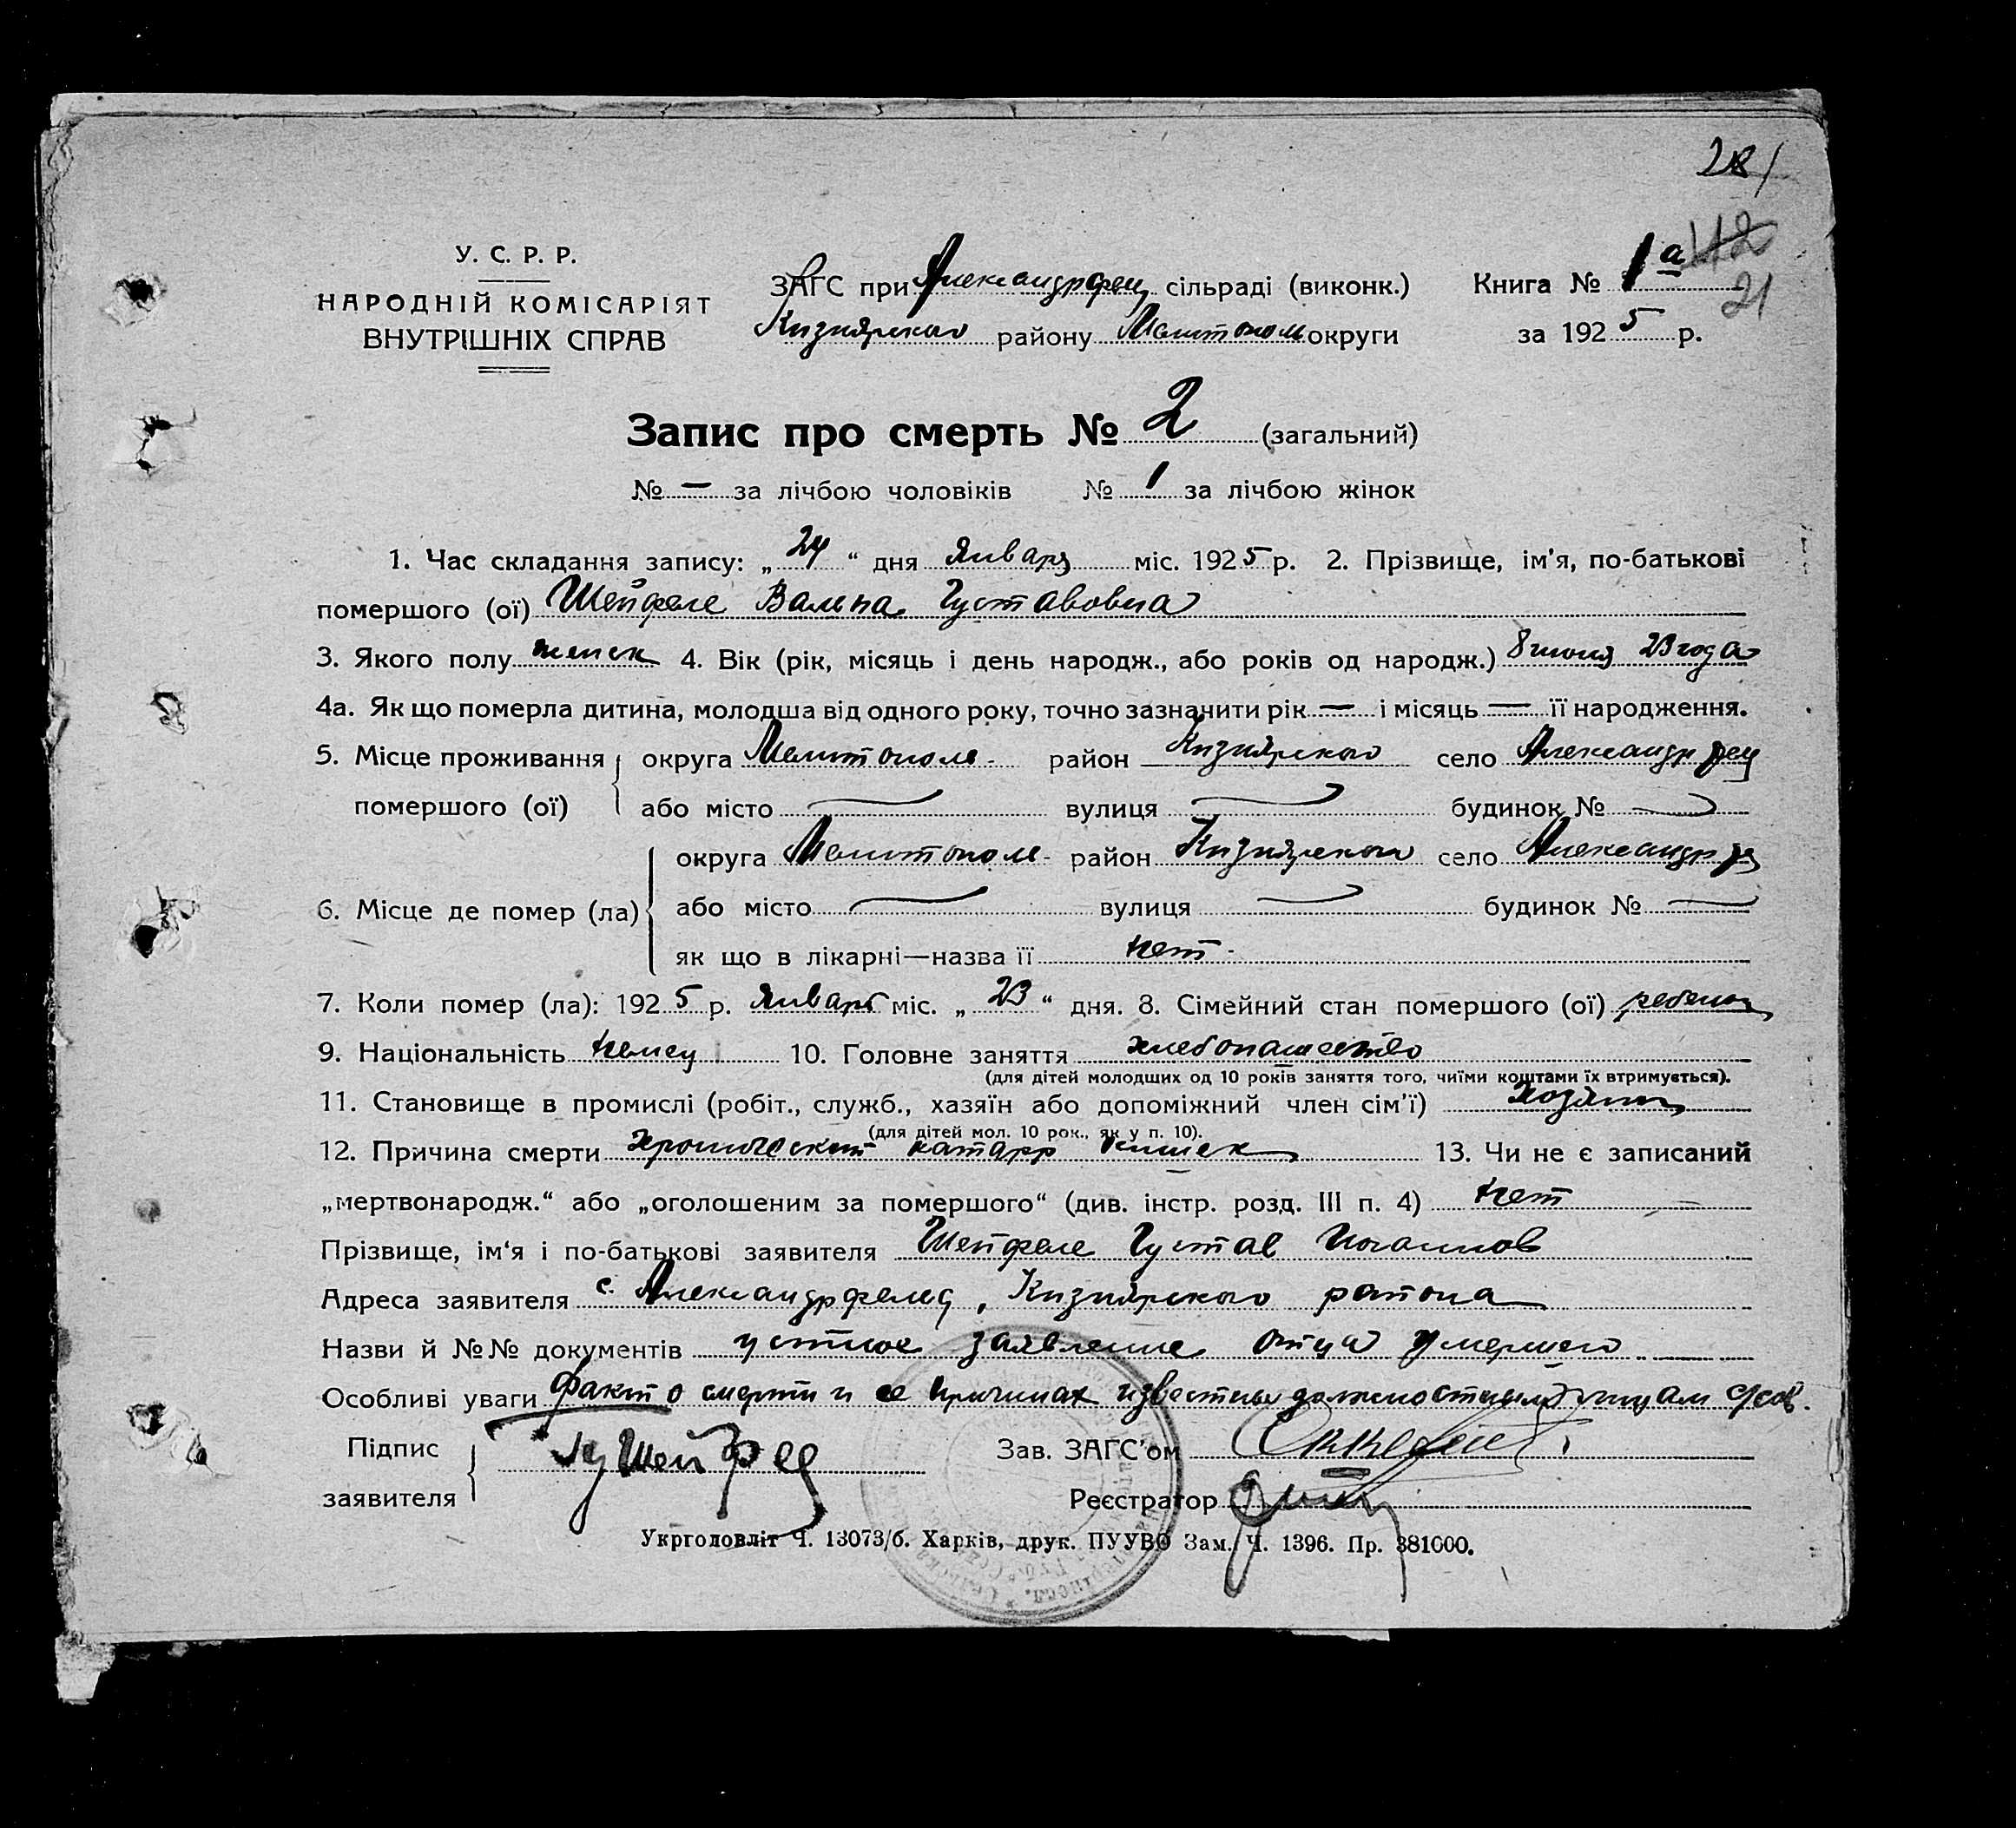 281
У. С. Р. Р.
НАРОДНІЙ КОМІСАРІЯТ
ВНУТРІШНІХ СПРАВ
ЗАГС при Александрфелд сільраді (виконк.)
Кизиярского району Мелитополь округи
Книга № 1а 112
21
за 1925 р.
Запис про смерть № 2 (загальний)
№ — за лічбою чоловіків № 1 за лічбою жінок
1. Час складання запису: „24“ дня Января міс. 1925 р. 2. Прізвище, ім'я, по-батькові
помершого (ої) Шейфеле Вальпа Густавовна
3. Якого полу женск 4. Вік (рік, місяць і день народж., або років од народж.) 8 июня 23 года
4а. Як що померла дитина, молодша від одного року, точно зазначити рік — і місяць — її народження.
5. Місце проживання округа Мелитополь- район Кизиярского село Александрфелд
помершого (ої) або місто — вулиця — будинок № —
округа Мелитополь- район Кизиярского село Александрфе
6. Місце де помер (ла) або місто — вулиця — будинок № —
як що в лікарні—назва її нет -
7. Коли помер (ла): 1925 р. Январь міс. „23“ дня. 8. Сімейний стан помершого (ої) ребенок
9. Національність немец 10. Головне заняття хлебопашество
(для дітей молодших од 10 років заняття того, чиїми коштами їх втримується).
11. Становище в промислі (робіт., служб., хазяїн або допоміжний член сім'ї) хозяин
(для дітей мол. 10 рок., як у п. 10).
12. Причина смерти хронический катарр кишек 13. Чи не є записаний
„мертвонародж.“ або „оголошеним за помершого“ (див. інстр. розд. III п. 4) нет
Прізвище, ім'я і по-батькові заявителя Шейфеле Густав Иоганнов
Адреса заявителя с. Александрфелд, Кизиярского района
Назви й №№ документів устное заявление отца умершего
Особливі уваги Факт о смерти и ее причинах известны должностным лицам с/сов.
Підпис
заявителя Гу Шейфеле
Зав. ЗАГС'ом
Реєстратор
Укрголовліт Ч. 13073/б. Харків, друк. ПУУВО Зам. Ч. 1396. Пр. 381000.